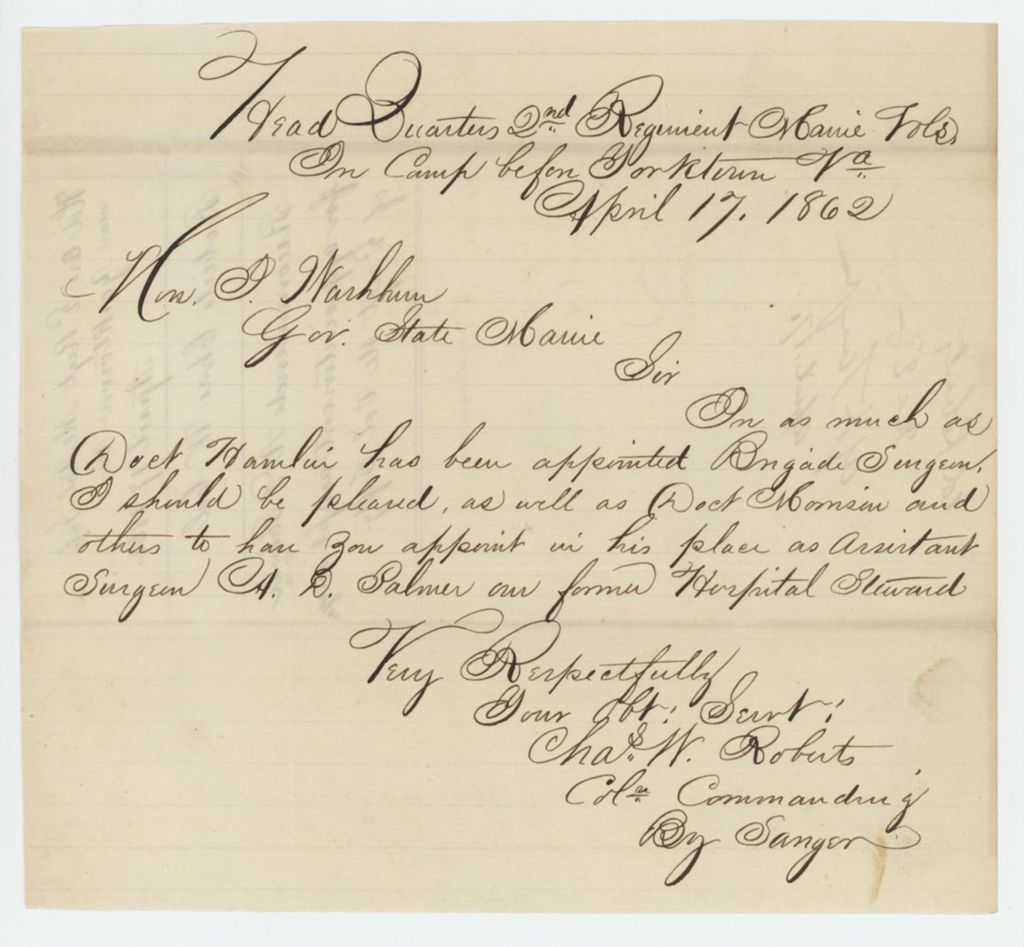 Head Quarters 2nd Regiment Maine Vols,
In Camp before Yorktown Va
April 17. 1862
Hon. I. Washburn
Gov. State Maine
Sir
In as much as
Doct Hamlin has been appointed Brigade Surgeon.
I should be pleased, as well as Doct Morrison and
others to have you appoint in his place as Assistant
Surgeon A. D. Palmer our former Hospital Steward
Very Respectfully
Your Obt: Servt:
Chas W. Roberts
Coln Commanding
By Sanger